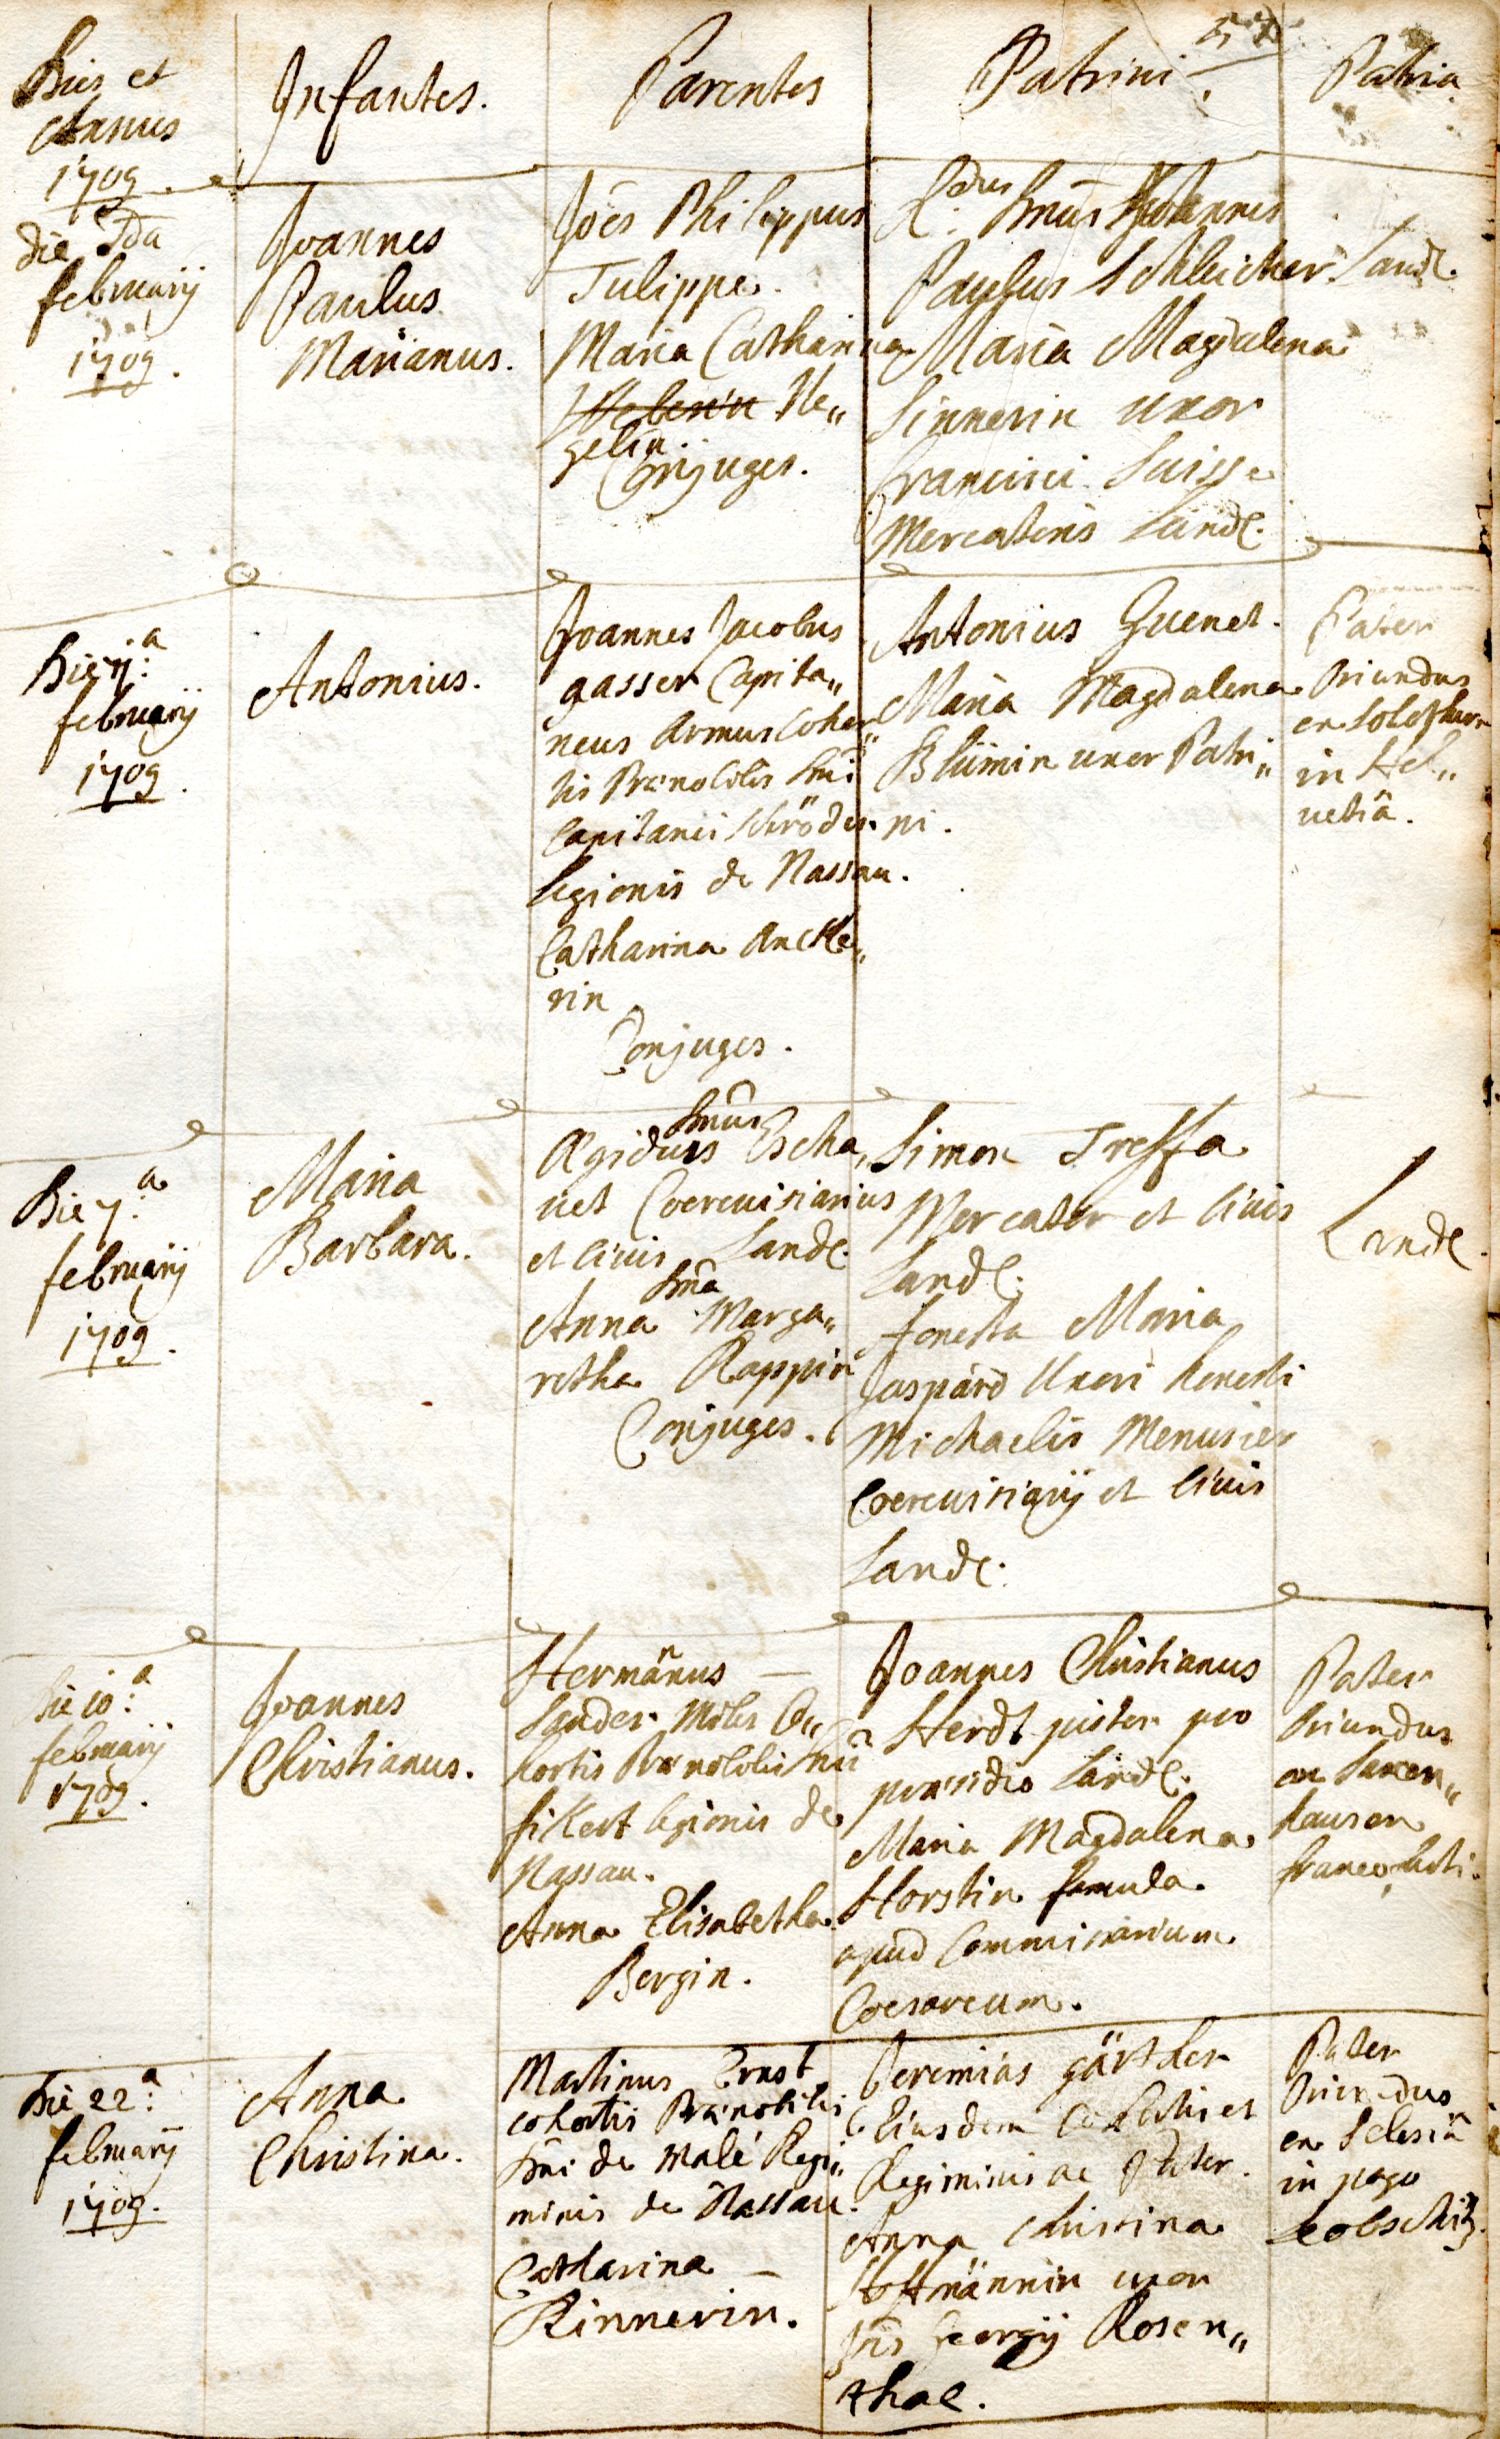 57
Dies et
Annus
1709
Infantes.
Parentes
Patrini.
Patria
die 3da
februarij
1709.
Joannes
Paulus
Marianus.
Joes Philippus
Tulippe.
Maria Catharina
Weberin He„
gelin
Conjuges.
R:dus Dnus Joannes
Paulus Schleicher.
Maria Magdalena
Sinnerin uxor
Francisci Suisse
Mercatoris Land:
Land:
Die 4:a
februarij
1709.
Antonius.
Joannes Jacobus
gasser Capita„
neus Armus Cohor„
tis Prænobilis Dni
Capitanei Schröder
legionis de Nassau.
Catharina Ancke„
rin
Conjuges.
Antonius Guenet.
Maria Magdalena
Blümin uxor Patri„
ni.
Pater
Oriundus
ex Solothurn
in Hel„
uetiä.
Die 7:a
februarij
1709.
Maria
Barbara.
Dnus
Ægidius Escha„
uet Coereuisiarius
et Ciuis Land:
Dna
Anna Marga„
retha Rappin
Conjuges.
Simon Treffa
Mercator et Ciuis
Land:
honesta Maria
Gaspard Uxori honesti
Michaelis Menusier
Coereuisiarij et Ciuis
Land:
Land:
Die 10:a
februarij
1709.
Joannes
Christianus.
Hermãnus
Sander Miles Co„
hortis Prænobilis Dni
fikert legionis de
Nassau.
Anna Elisabetha
Bergin.
Joannes Christianus
Herdt pistor pro
præsidio Land:
Maria Magdalena
Horstin famula
apud Commissarium
Coesareum.
Pater
Oriundus
ex Saxen„
hausen
francofurti.
Die 22:a
februarij
1709.
Anna
Christina.
Martinus Ernst
cohortis Prænobilis
Dni de Malé Regi„
minis de Nassau.
Catharina
Rinnerin.
Jeremias gärtler
Eiusdem Cohortis et
Regiminis ac Pater.
Anna Christina
Hoffmännin uxor
Jois Georgij Rosen„
thal.
Pater
Oriundus
ex Silesiä
in pago
Leobschitz.